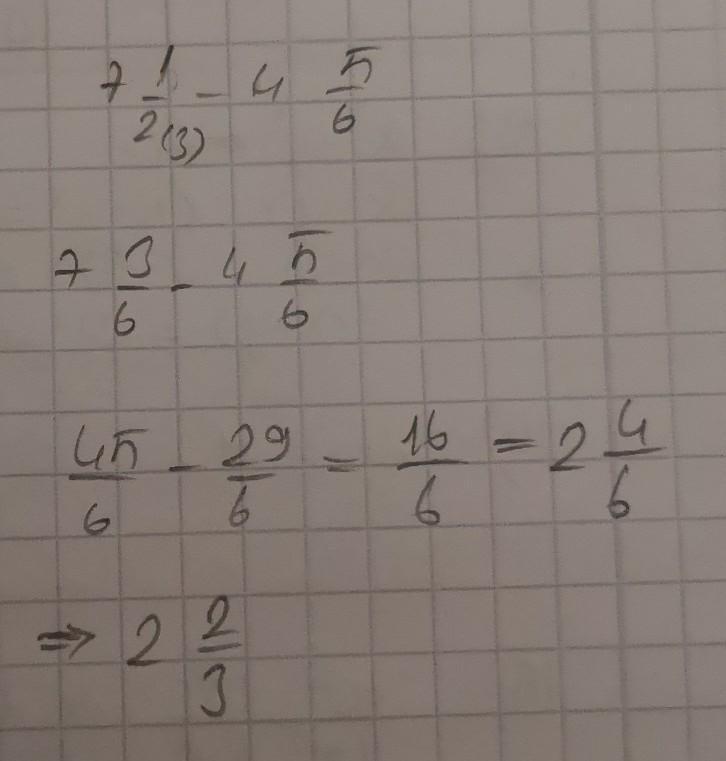 7 1/2(3) - 4 5/6
7 3/6 - 4 5/6
45/6 - 29/6 = 16/6 = 2 4/6
⇒ 2 2/3